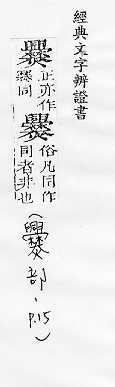 經典文字辨證書
爨
正亦作
同
俗凡同作
同者非也
(爨部、P.15)